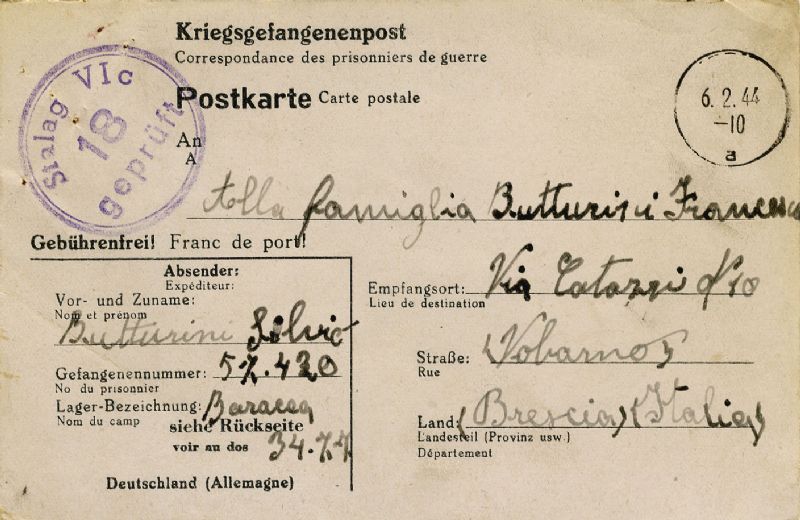 Kriegsgefangenenpost
Correspondance des prisonniers de guerre
Postkarte Carte postale
Stalag VIc
18
geprüft
6.2.44
-10
a
An
A
Alla famiglia Butturini Francesco
Gebührenfrei! Franc de port!
Absender:
Expéditeur:
Vor- und Zuname:
Nom et prénom
Butturini Silvio
Gefangenennummer: 57.420
No du prisonnier
Lager-Bezeichnung: Baracca
Nom du camp
siehe Rückseite
voir au dos
34.77
Deutschland (Allemagne)
Empfangsort: Via
Lieu de destination
Straße: (Vobarno)
Rue
Land: (Brescia) (Italia)
Landesteil (Provinz usw.)
Département